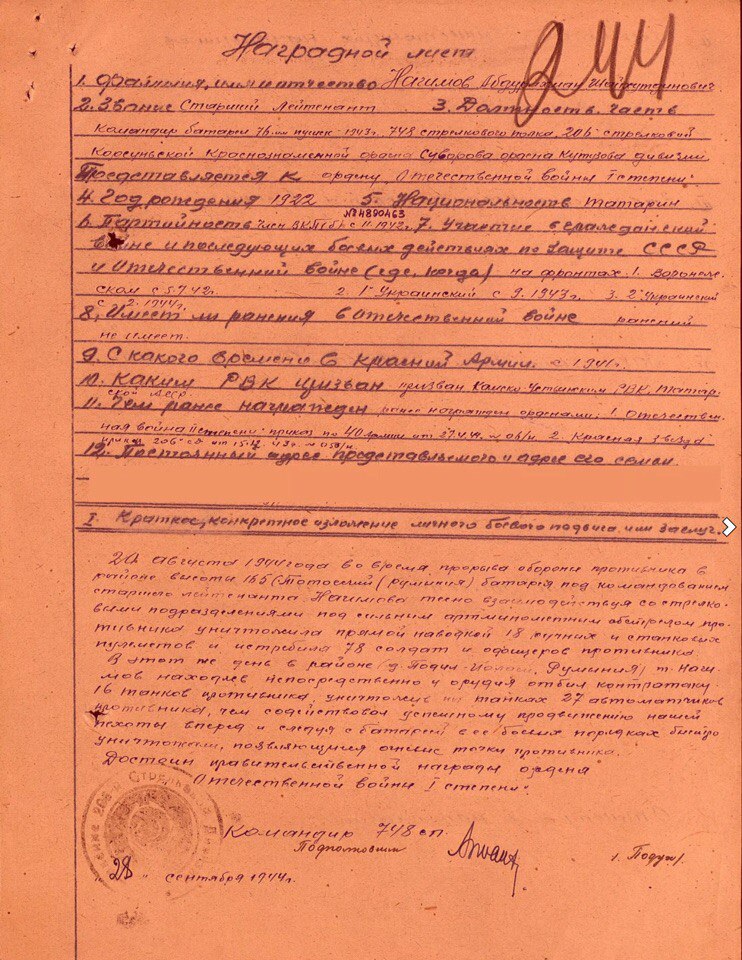 244
Наградной лист
1. Фамилия, имя и отчество Нагимов Абдурахман Шайхутдинович
2. Звание Старший Лейтенант 3. Должность, часть
Командир батареи 76 мм пушек 1943 г. 748 стрелкового полка, 206 стрелковой
Корсуньской Краснознаменной ордена Суворова ордена Кутузова дивизии.
Представляется к ордену "Отечественной войны I степени"
4. Год рождения 1922 5. Национальность татарин
№4890463
6. Партийность член ВКП(б) с 11.1942 г. 7. Участие в гражданской
войне и последующих боевых действиях по защите СССР
и Отечественной войне (где, когда) на фронтах: 1. Воронеж-
ском с 5.7.42 г. 2. 1й Украинский с 9.1943 г. 3. 2й Украинский
с 2.1944 г.
8. Имеет ли ранения в Отечественной войне ранений
не имеет.
9. С какого времени в Красной Армии с 1941 г.
10. Каким РВК призван призван Камско Устьинским РВК, Татар-
ской АССР
11. Чем ранее награжден ранее награжден орденами: 1. Отечествен-
ная война II степени приказ по 40 армии от 2. Красная Звезда
приказ 206 сд от
12. Постоянный адрес представляемого и адрес его семьи
I. Краткое, конкретное изложение личного боевого подвига или заслуг.
20 августа 1944 года во время прорыва обороны противника в
районе высоты 165 (Румыния) батарея под командованием
старшего лейтенанта Нагимова тесно взаимодействуя со стрелко-
выми подразделениями под сильным артминометным обстрелом про-
тивника уничтожила прямой наводкой 18 ручных и станковых
пулеметов и истребила 78 солдат и офицеров противника.
В этот же день в районе (д. Румыния) т. Наги-
мов находясь непосредственно у орудия отбил контратаку
16 танков противника уничтожив на танках 27 автоматчиков
противника, чем содействовал успешному продвижению нашей
пехоты вперед и следуя с батареей в ее боевых порядках быстро
уничтожени, появляющиеся огневые точки противника.
Достоин правительственной награды ордена
"Отечественной войны I степени".
Командир 748 сп.
Подполковник
"28" сентября 1944 г.